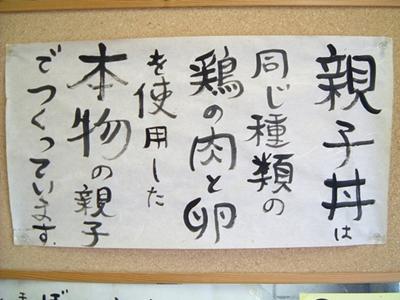 親子丼は
同じ種類の
鶏の肉と卵
を使用した
本物の親子
でつくっています。